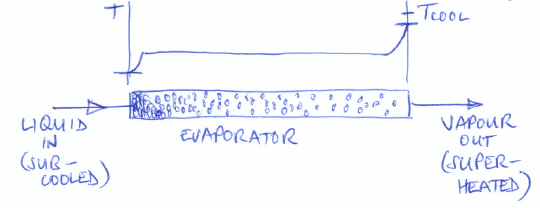 T
TCOOL
LIQUID
IN
(SUB-
COOLED)
EVAPORATOR
VAPOUR
OUT
(SUPER-
HEATED)